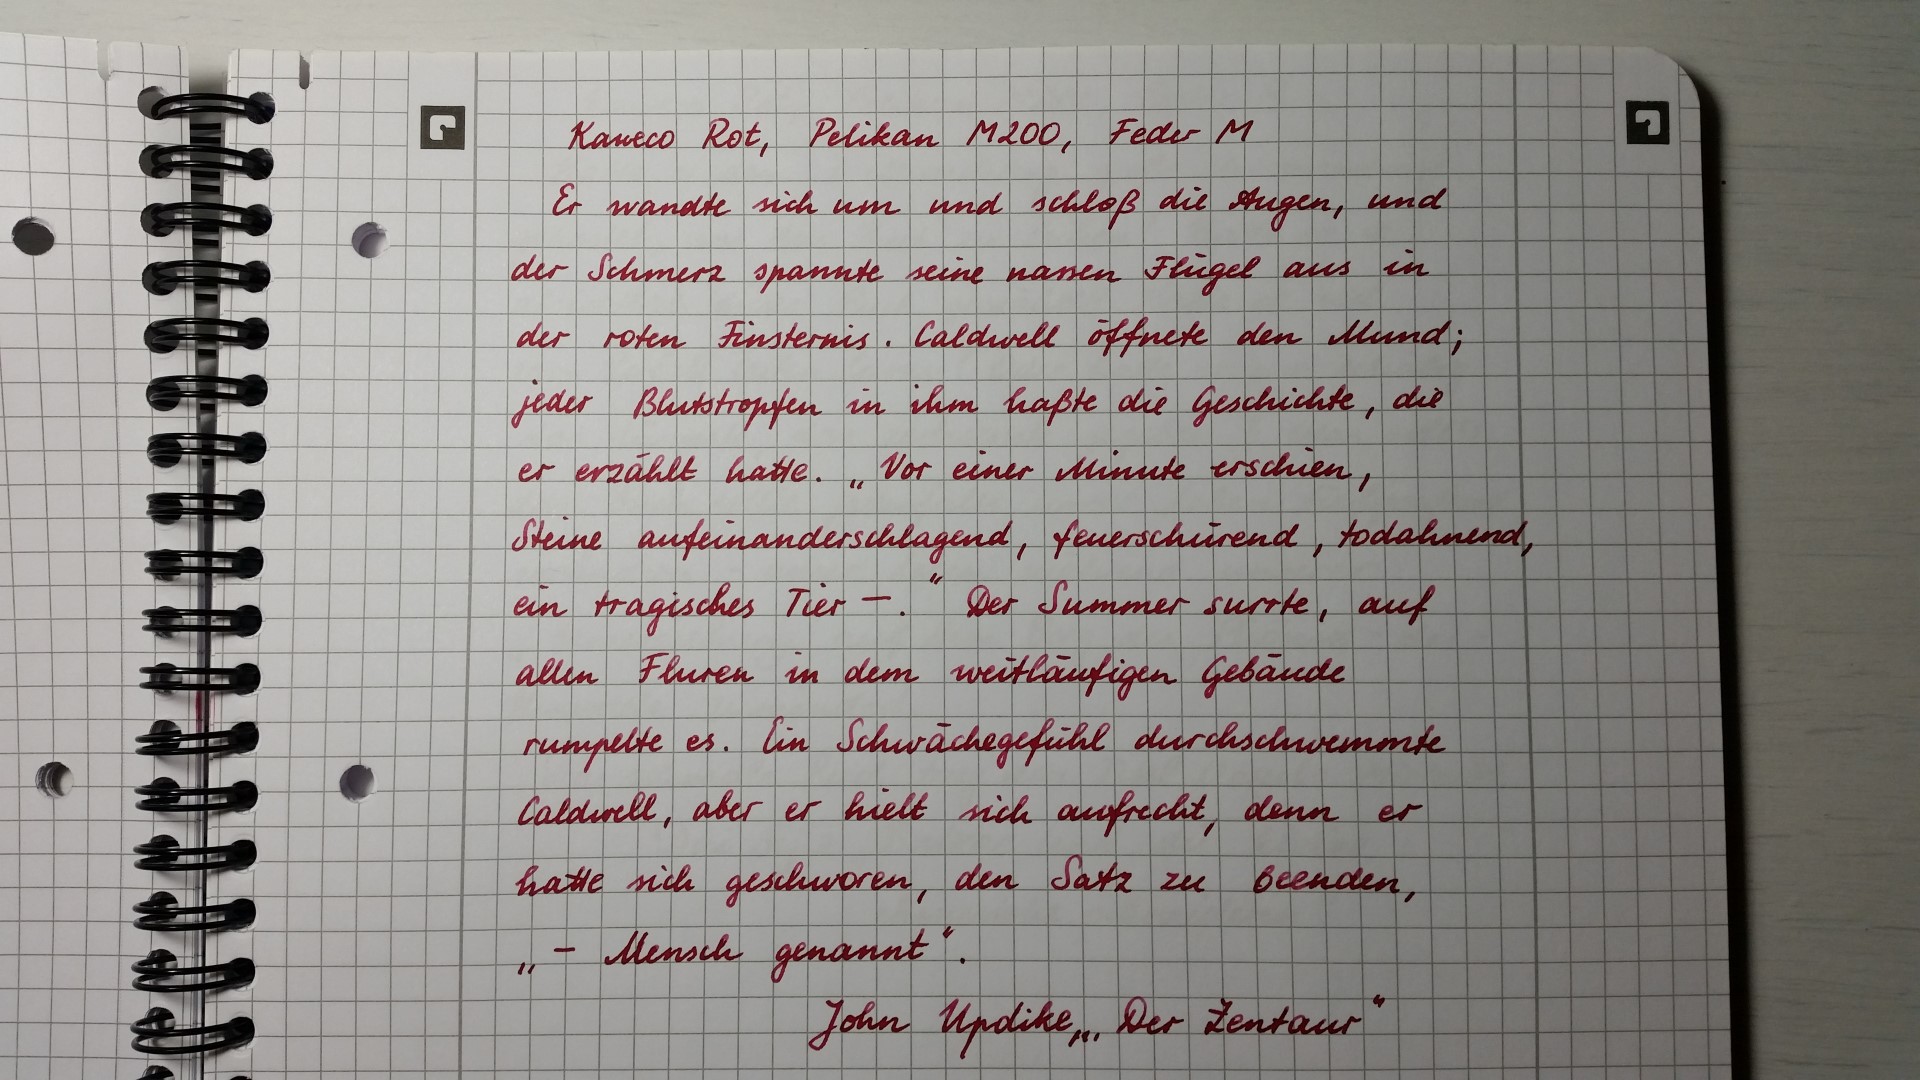 Kaweco Rot, Pelikan M200, Feder M
Er wandte sich um und schloß die Augen, und
der Schmerz spannte seine nassen Flügel aus in
der roten Finsternis. Caldwell öffnete den Mund;
jeder Blutstropfen in ihm haßte die Geschichte, die
er erzählt hatte. „Vor einer Minute erschien,
Steine aufeinanderschlagend, feuerschürend, todahnend,
ein tragisches Tier —.“ Der Summer surrte, auf
allen Fluren in dem weitläufigen Gebäude
rumpelte es. Ein Schwächegefühl durchschwemmte
Caldwell, aber er hielt sich aufrecht, denn er
hatte sich geschworen, den Satz zu beenden,
„— Mensch genannt“.
John Updike, „Der Zentaur“